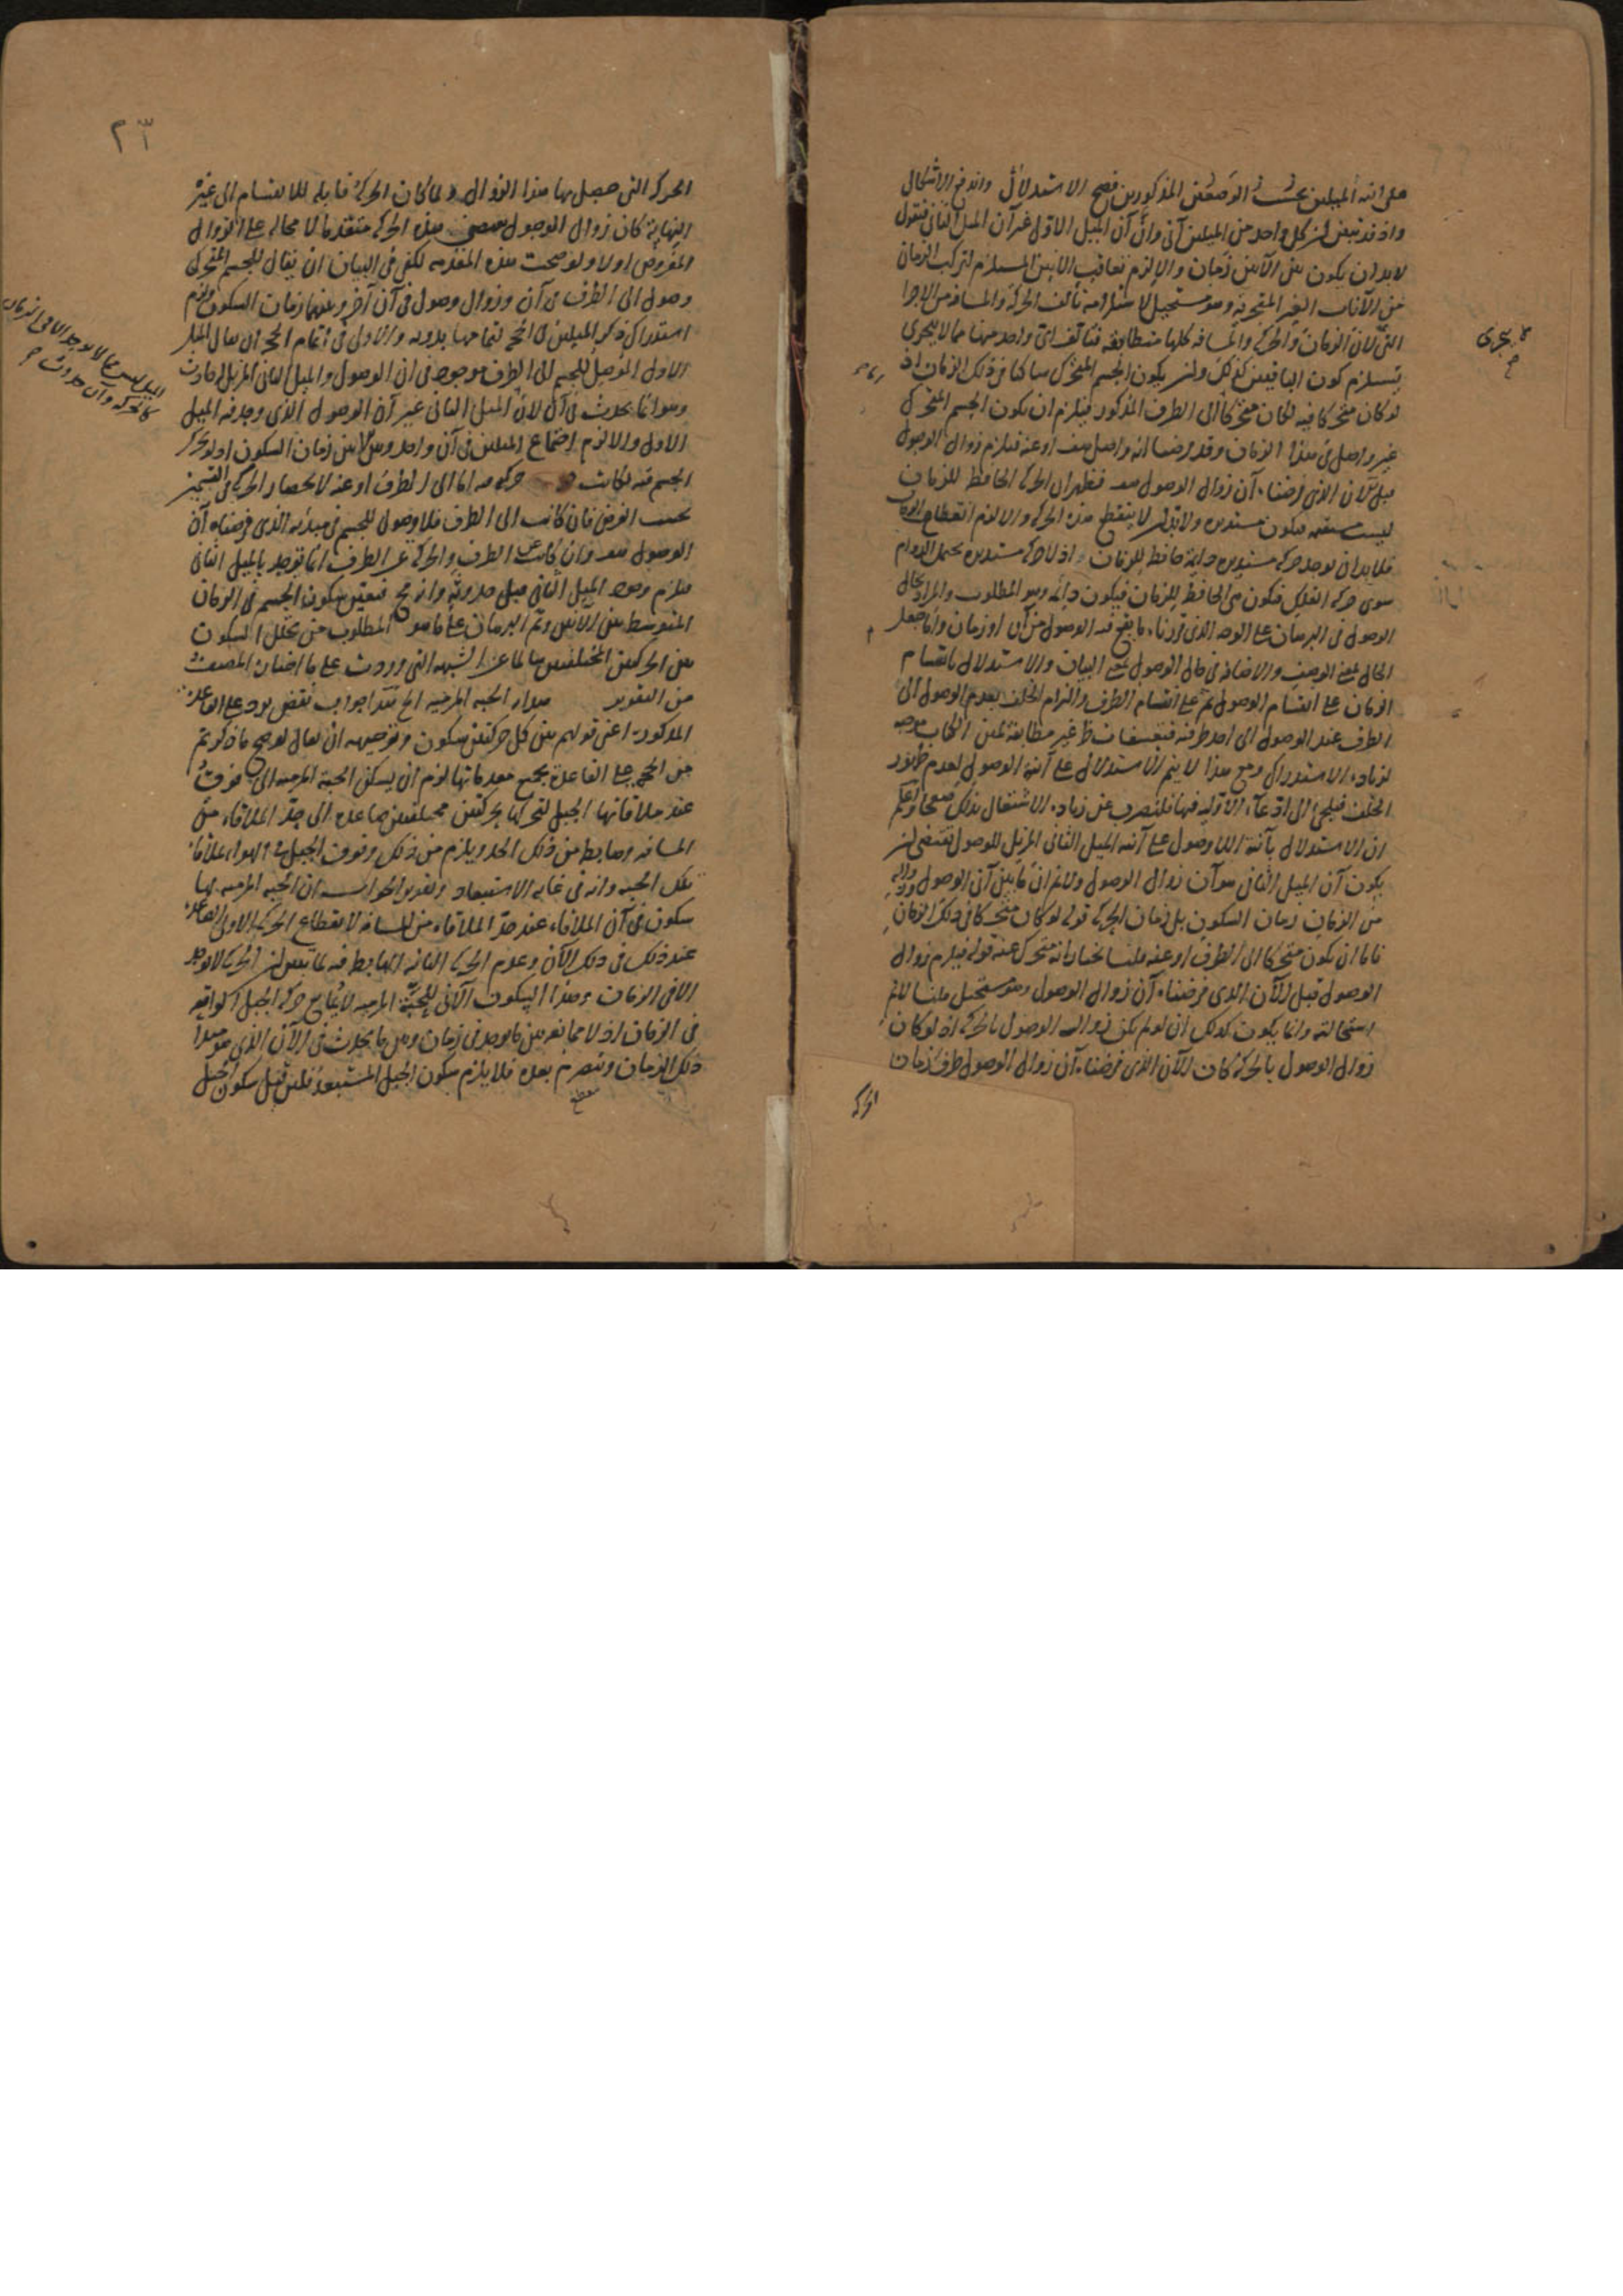 على انية الميلين بحسب الوصفين المذكورين فصح الاستدلال واندفع الاشكال
واذ قد تبين ان كل واحد من الميلين آنى وان آن الميل الاول غير آن الميل الثانى فنقول
لابد ان يكون بين الآنين زمان والا لزم تعاقب الآنين المستلزم لتركب الزمان
من الآنات الغير المتجزية وهو مستحيل لاستلزامه تألف الحركة والمسافة من الاجزا
التى لان الزمان والحركة والمسافة كلها متطابقة فتألف اى واحد منها مما لا يتجزى
يستلزم كون الباقيين كذلك وان يكون الجسم المتحرك ساكنا فى ذلك الزمان اذ
لو كان متحركا فيه لكان متحركا الى الطرف المذكور فيلزم ان يكون الجسم المتحرك
غير واصل فى هذا الزمان وقد فرضنا انه واصل هف او عنه فيلزم زوال الوصول
قبل الآن الذى فرضناه آن زوال الوصول هف فظهر ان الحركة الحافظة للزمان
ليست مستقيمة فيكون مستديرة ولابد ان لا ينقطع هذه الحركة والا لزم انقطاع الزمان
فلابد ان يوجد حركة مستديرة دائمة حافظة للزمان اذ لا حركة مستديرة يحتمل الدوام
سوى حركة الفلك فيكون هى الحافظة للزمان فيكون دائمة وهو المطلوب والمراد بحال
الوصول فى البرهان على الوجه الذى قررناه ما يقع فيه الوصول من آن او زمان واما جعل
الحال بمعنى الوصف والاضافة فى حال الوصول والاستدلال بانقسام
الزمان على انقسام الوصول ثم على انقسام الطرف والزام الخلف بعدم الوصول الى
الطرف عند الوصول الى احد طرفيه فتعسفات غير مطابقة لمتن الكتاب موجبة
لزيادة الاستدراك ومع هذا لا يتم الاستدلال على آنية الوصول لعدم ظهور
الخلف فيلجئ الى ادعاء الاولية فيها فلنصرف عن زيادة الاشتغال بذلك صفحا واعلم
ان الاستدلال بآنية اللاوصول على آنية الميل الثانى المزيل للوصول يقتضى ان
يكون آن الميل الثانى هو آن زوال الوصول ولا نم ان ما بين آنى الوصول وزواله
من الزمان زمان السكون بل زمان الحركة قوله لو كان متحركا فى ذلك الزمان
فاما ان يكون متحركا الى الطرف او عنه قلنا نختار انه متحرك عنه قوله فيلزم زوال
الوصول قبل الآن الذى فرضناه آن زوال الوصول وهو مستحيل قلنا لا نم
استحالته وانما يكون كذلك ان لو لم يكن زوال الوصول بالحركة اذ لو كان
زوال الوصول بالحركة كان الآن الذى فرضناه آن زوال الوصول طرف زمان
الحركة
يتجزى
٢٣
الحركة التى حصل بها هذا الزوال ولما كان الحركة قابلة للانقسام الى غير
النهاية كان زوال الوصول ببعض هذه الحركة متقدما لا محالة على الزوال
المفروض اولا ولو صحت هذه المقدمة لكفى فى البيان ان يقال للجسم المتحرك
وصول الى الطرف فى آن وزوال وصول فى آن آخر وبينهما زمان السكون ولزم
استدراك ذكر الميلين فى الحجة لتمامها بدونه والاولى فى اتمام الحجة ان يقال الميل
الاول الموصل للجسم الى الطرف موجود فى آن الوصول والميل الثانى المزيل حادث
وهو انما يحدث فى آن لان الميل الثانى غير آن الوصول الذى وجد فيه الميل
الاول والا لزم اجتماع الميلين فى آن واحد وبين الآنين زمان السكون اذ لو تحرك
الجسم فيه لكانت حركته اما الى الطرف او عنه لانحصار الحركة فى القسمين
بحسب الفرض فان كانت الى الطرف فلا وصول للجسم فى مبدئه الذى فرضناه آن
الوصول هف وان كانت عن الطرف والحركة عن الطرف انما توجد بالميل الثانى
فيلزم وجود الميل الثانى قبل حدوثه وانه مح فتعين سكون الجسم فى الزمان
المتوسط بين الآنين وتم البرهان على ما هو المطلوب من تخلل السكون
بين الحركتين المختلفتين سالما عن الشبهة التى وردت على ما اختاره المصنف
من التقرير مدار الحبة المرمية الخ هذا جواب نقض يرد على القاعدة
المذكورة اعنى قولهم بين كل حركتين سكون وتوجيهه ان يقال لو صح ما ذكرتم
من الحجة على القاعدة بجميع مقدماتها لزم ان يسكن الحبة المرمية الى فوق
عند ملاقاتها الجبل لتحركها بحركتين مختلفتين صاعدة الى حد الملاقاة من
المسافة وهابطة من ذلك الحد ويلزم من ذلك وقوف الجبل فى الهواء بملاقاة
تلك الحبة وانه فى غاية الاستبعاد وتقرير الجواب ان الحبة المرمية لها
سكون فى آن الملاقاة عند حد الملاقاة من المسافة لانقطاع الحركة الاولى الصاعدة
عند ذلك فى ذلك الآن وعدم الحركة الثانية الهابطة فيه لما تبين ان الحركة لا توجد
الا فى الزمان وهذا السكون الآنى للحبة المرمية لا يمانع حركة الجبل الواقعة
فى الزمان اذ لا ممانعة بين ما يوجد فى زمان وبين ما يحدث فى الآن الذى هو مبدأ
ذلك الزمان وينصرم بعده فلا يلزم سكون الجبل المستبعد فلئن قيل سكون الجبل
ينقطع
الميل ليس مما لا يوجد الا فى الزمان
كالحركة وآن حدوث